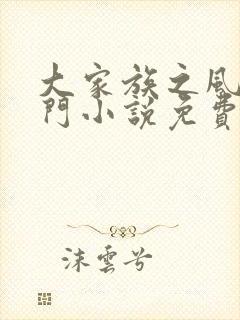 大家族之風
門小說免費
沫雲兮